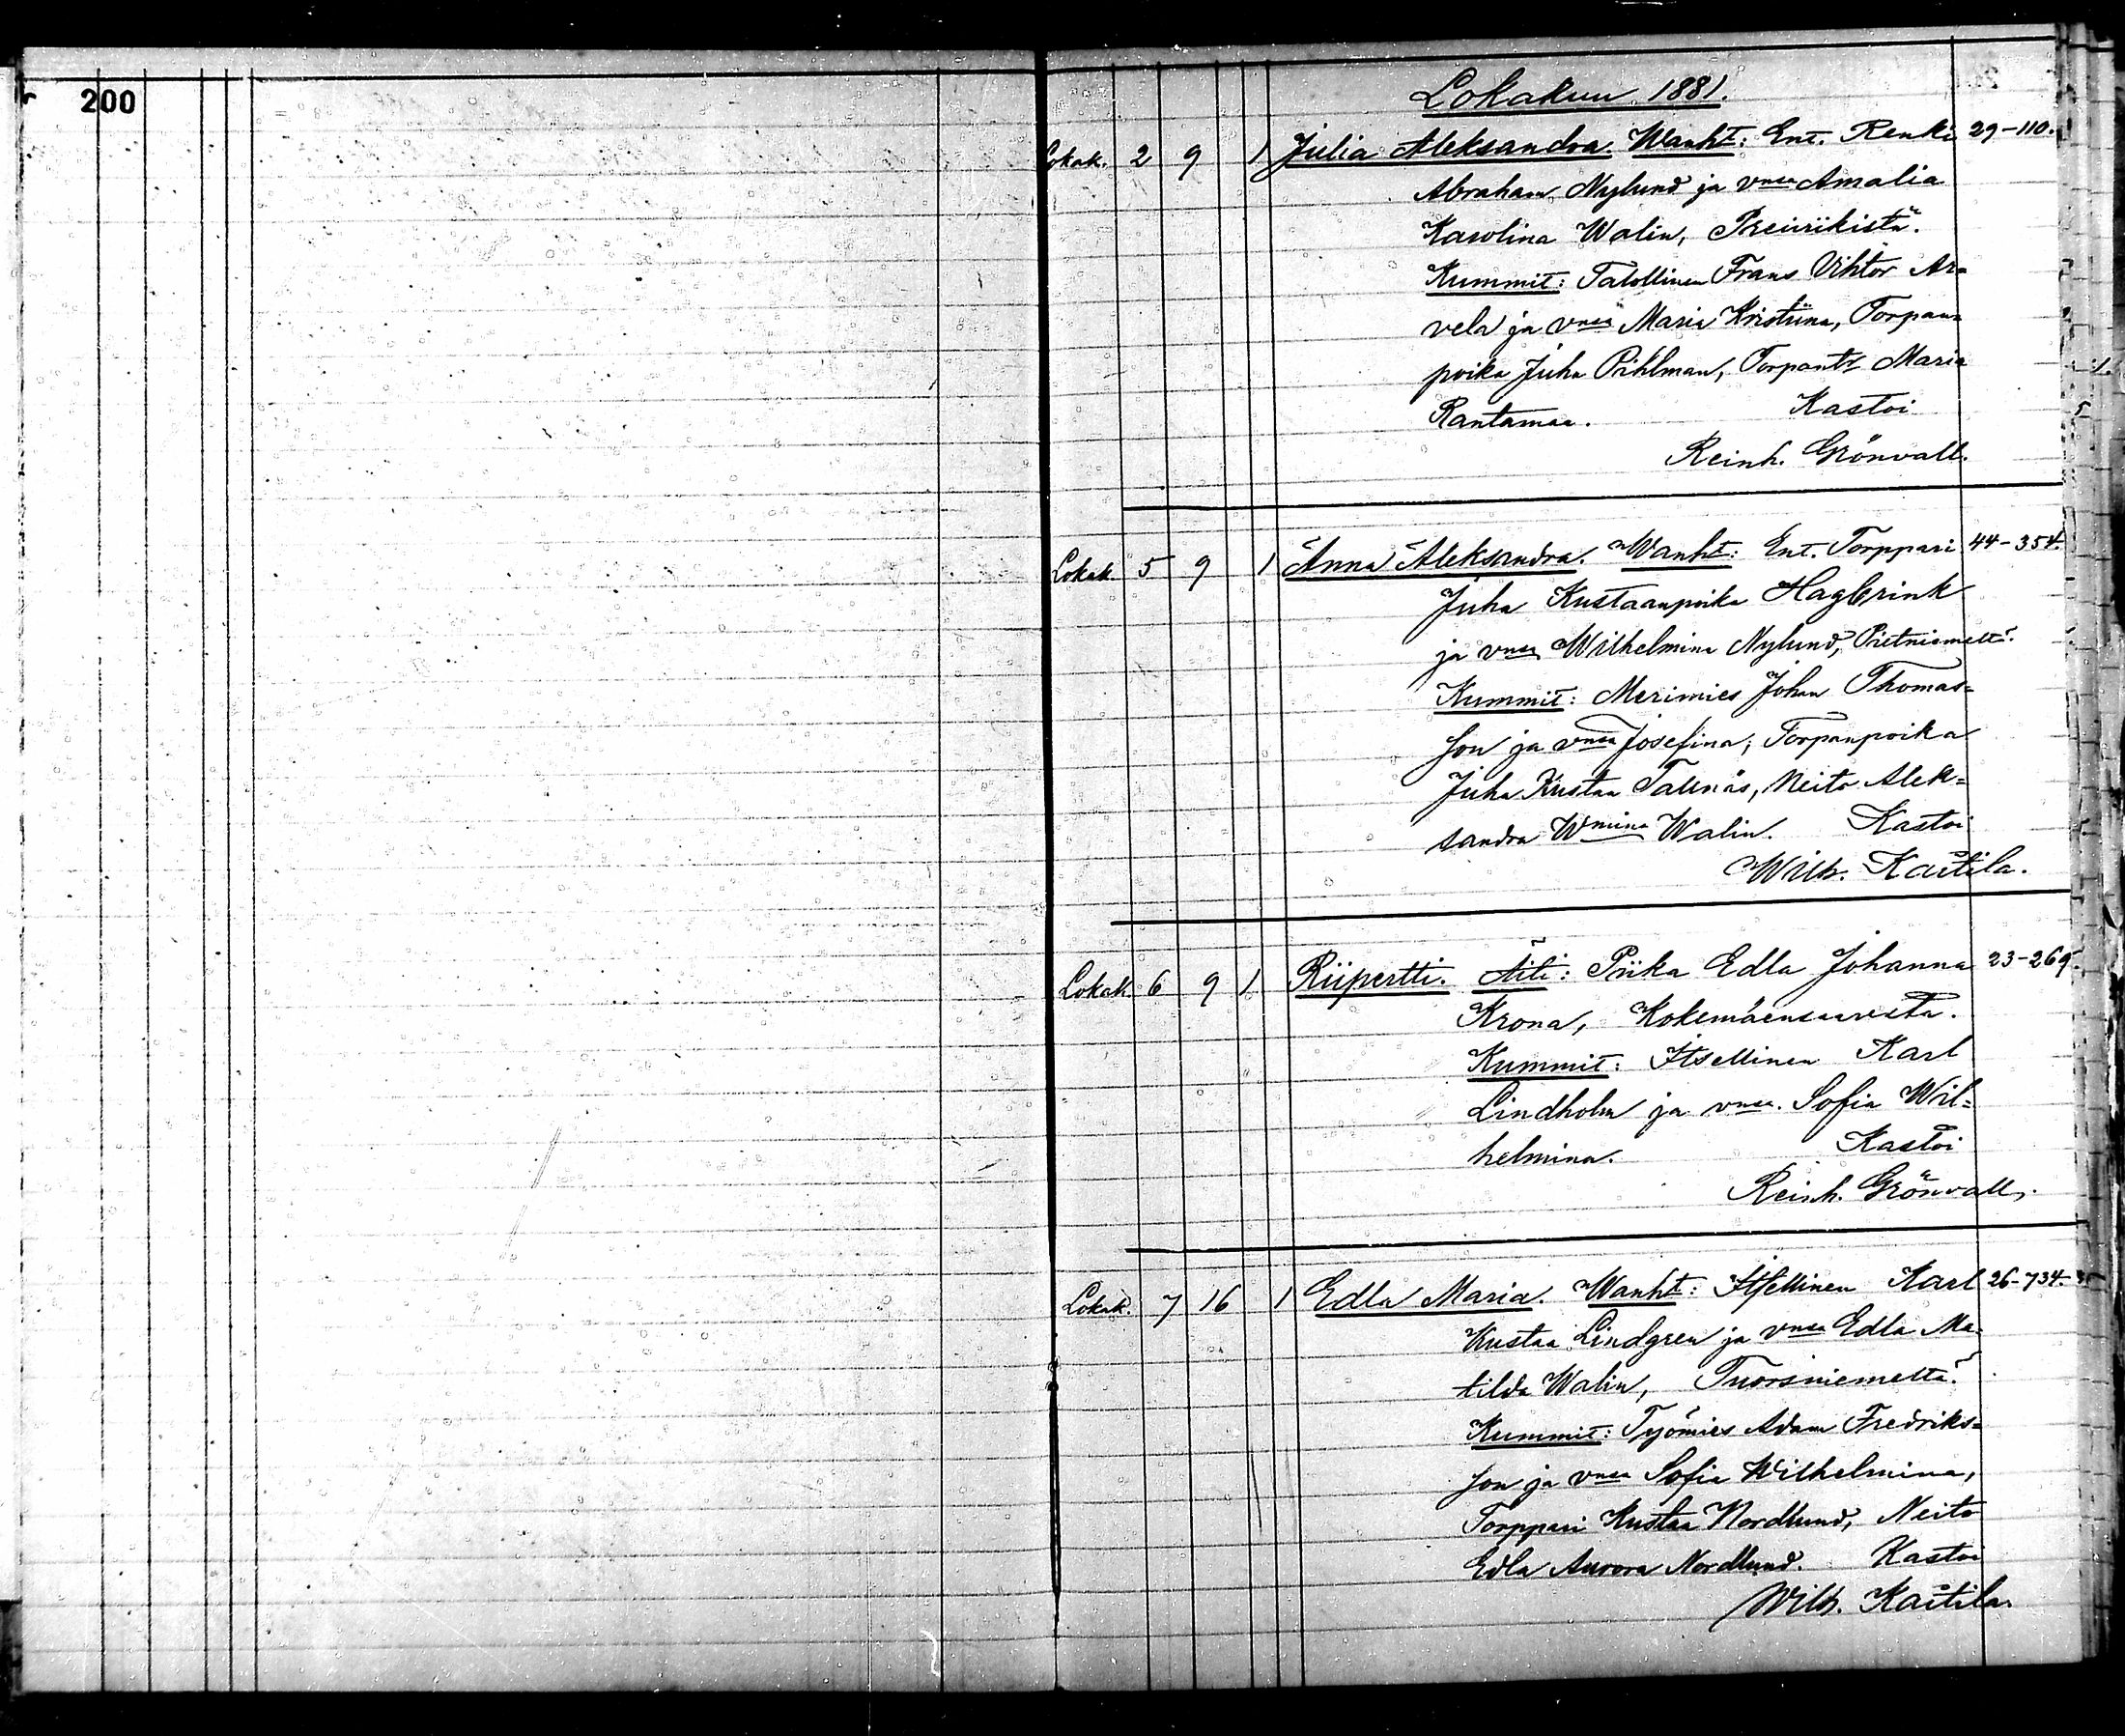 200
Lokakuu 1881.
Lokak. 2 9 1 Julia Aleksandra. Wanht: Ent. Renki 29-110.
Abraham Nylund ja vmsa Amalia
Karolina Walin, Preiviikistä.
Kummit: Talollinen Frans Vihtor Ar=
vela ja vmsa Maria Kristiina, Torpan=
poika Juha Pihlman, Torpantr Maria
Rantamaa. Kastoi
Reinh. Grönvall.
Lokak. 5 9 1 Anna Aleksandra. Wanht: Ent. Torppari 44-354.
Juha Kustaanpoika Hagbrink
ja vmsa Wilhelmina Nylund, Pietniemeltä.
Kummit: Merimies Johan Thomas=
son ja vmsa Josefina, Torpanpoika
Juha Kustaa Tallnäs, Neito Alek=
sandra Wmina Walin. Kastoi
Wilh. Kaitila.
Lokak. 6 9 1 Riipertti. Äiti: Piika Edla Johanna 23-269.
Krona, Kokemäensaaresta.
Kummit: Itsellinen Karl
Lindholm ja vmsa. Sofia Wil=
helmina. Kastoi
Reinh. Grönvall.
Lokak. 7 16 1 Edla Maria. Wanht: Itsellinen Karl 26-734.
Kustaa Lindgren ja vmsa Edla Ma=
tilda Walin, Tuorsniemeltä.
Kummit: Työmies Adam Fredriks=
son ja vmsa Sofia Wilhelmina,
Torppari Kustaa Nordlund, Neito
Edla Aurora Nordlund. Kastoi
Wilh. Kaitila.